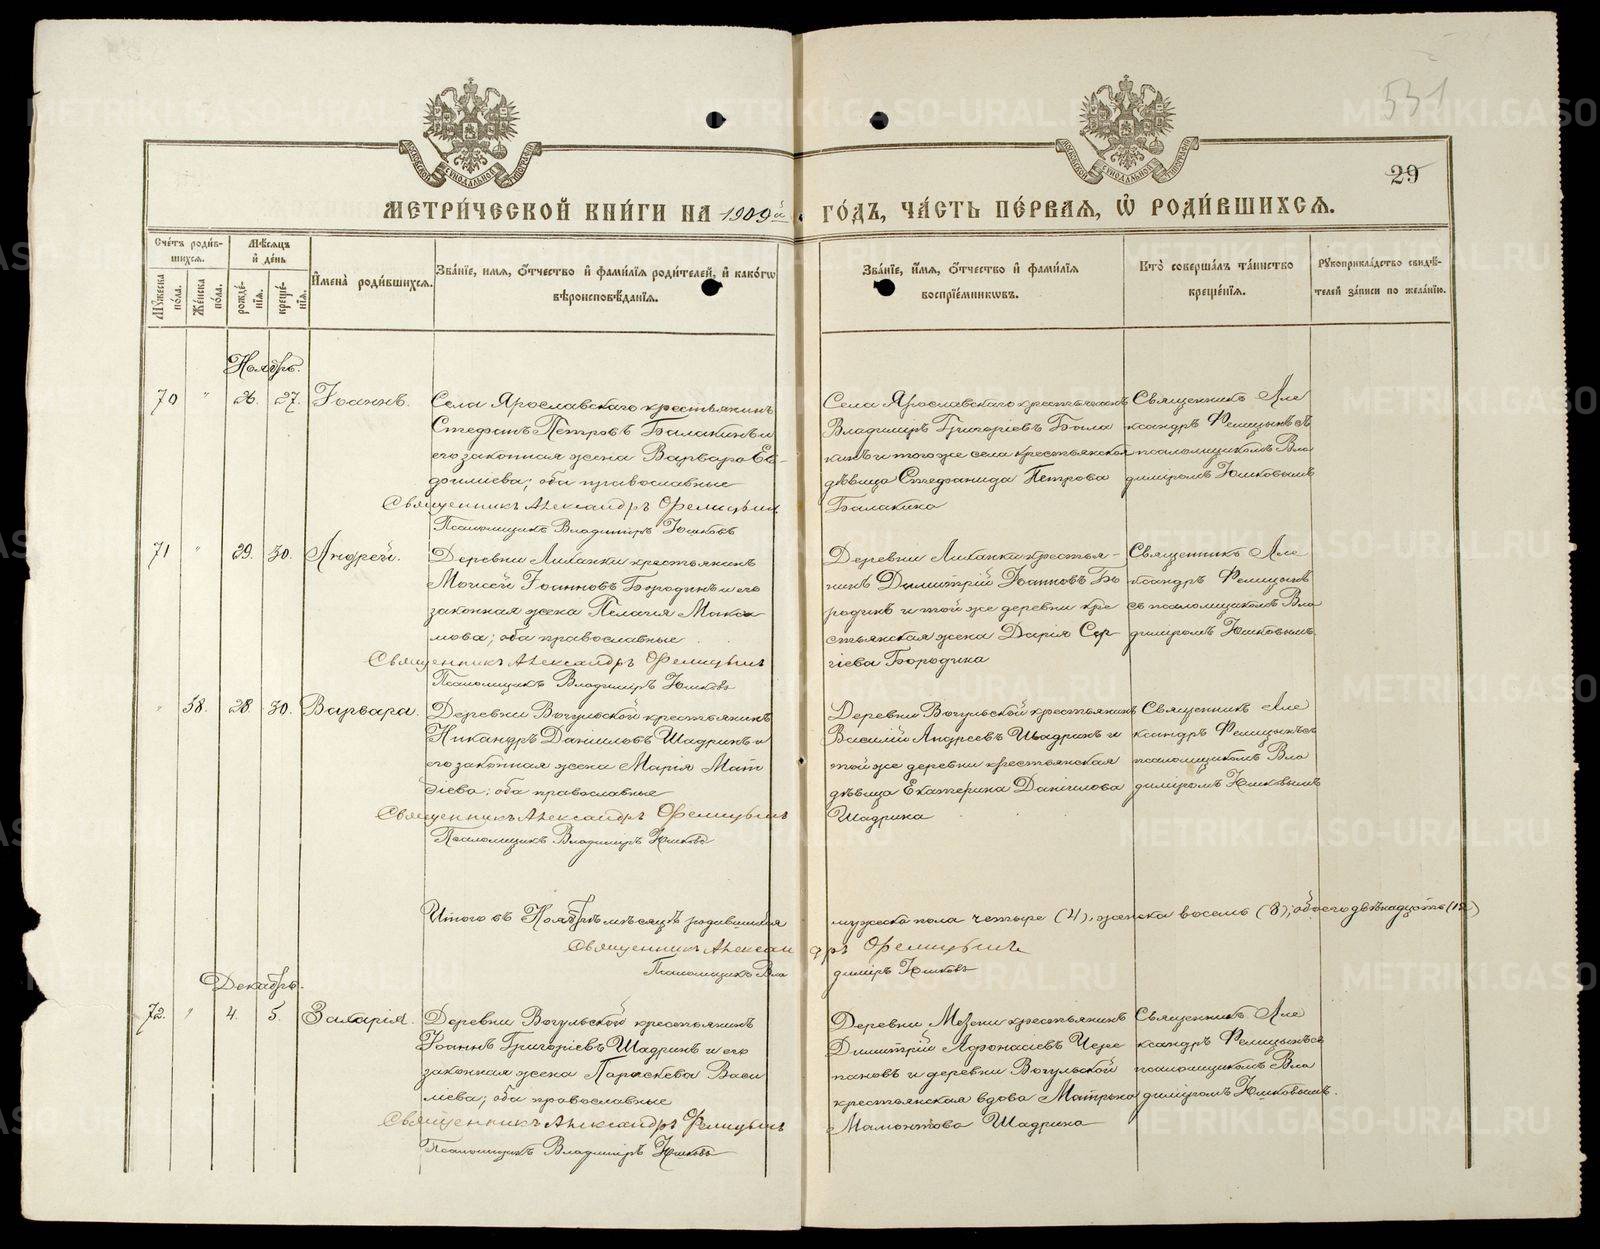 531
29
МОСКОВСКОЙ СѴНОДАЛЬНОЙ ТИПОГРАФІИ
МОСКОВСКОЙ СѴНОДАЛЬНОЙ ТИПОГРАФІИ
МЕТРИ́ЧЕСКОЙ КНИ́ГИ НА 1909й ГО́ДЪ, ЧА́СТЬ ПЕ́РВАЯ, Ѡ РОДИ́ВШИХСЯ.
Сче́тъ роди́в-
шихся.
Мꙋ́жеска по́ла.
Же́нска по́ла.
Мѣ́сяцъ и҆ де́нь
рожде́-нїя.
креще́-нїя.
И҆мена̀ роди́вшихся.
Зва́нїе, и҆мя, ѻ҆́тчество и҆ фами́лїя роди́телей, и҆ како́гѡ
вѣроисповѣ́данїя.
Зва́нїе, и҆́мя, ѻ҆́тчество и҆ фами́лїя
воспрїе́мникѡвъ.
Кто̀ соверша́лъ та́инство
креще́нїя.
Рꙋкоприкла́дство свидѣ́-
телей за́писи по жела́нїю.
Ноябрь.
70 " 26. 27. Іоаннъ.
Села Ярославскаго крестьянинъ
Стефанъ Петровъ Балакинъ и
его законная жена Варвара Ев-
филиева; оба православные
Священникъ Александръ Фелицынъ
Псаломщикъ Владиміръ Юшковъ
Села Ярославскаго крестьянинъ
Владимиръ Григоріевъ Бала
кинъ и тогоже села крестьянская
дѣвица Стефанида Петрова
Балакина
Священникъ Але
ксандръ Фелицынъ съ
псаломщикомъ Вла
димiромъ Юшковымъ
71 " 29. 30. Андрей.
Деревни крестьянинъ
Моисей Іоанновъ Бородинъ и его
законная жена Пелагія Мака
мова; оба православные
Священникъ Александръ Фелицынъ
Псаломщикъ Владиміръ Юшковъ
Деревни крестья-
нинъ Димитрій Іоанновъ Бо
родинъ и той же деревни кре
стьянская жена Дарія Сер
гіева Бородина
Священникъ Але
ксандръ Фелицынъ
съ псаломщикомъ Вла
димiромъ Юшковымъ.
" 58. 28. 30. Варвара.
Деревни Вогульской крестьянинъ
Никандръ Даниловъ Шадринъ и
его законная жена Марія Мат
ѳіева; оба православные
Священникъ Александръ Фелицынъ
Псаломщикъ Владиміръ Юшковъ
Деревни Вогульской крестьянинъ
Василій Андреевъ Шадринъ и
той же деревни крестьянская
дѣвица Екатерина Даніилова
Шадрина
Священникъ Але
ксандръ Фелицынъ съ
псаломщикомъ Вла
димiромъ Юшковымъ
Итого въ Ноябрѣ мѣсяцѣ родившихся мужеска пола четыре (4), женска восемь (8), обоего двѣнадцать (12)
Священникъ Александръ Фелицынъ
Псаломщикъ Владиміръ Юшковъ
Декабрь.
72. " 4. 5. Захарія.
Деревни Вогульской крестьянинъ
Іоаннъ Григоріевъ Шадринъ и его
законная жена Параскева Васи
лева; оба православные
Священникъ Александръ Фелицынъ
Псаломщикъ Владиміръ Юшковъ
Деревни Мезени крестьянинъ
Димитрій Афонасіевъ Чере
пановъ и деревни Вогульской
крестьянская вдова Матрона
Мамонтова Шадрина
Священникъ Але
ксандръ Фелицынъ съ
псаломщикомъ Вла
димiромъ Юшковымъ.
METRIKI.GASO-URAL.RU